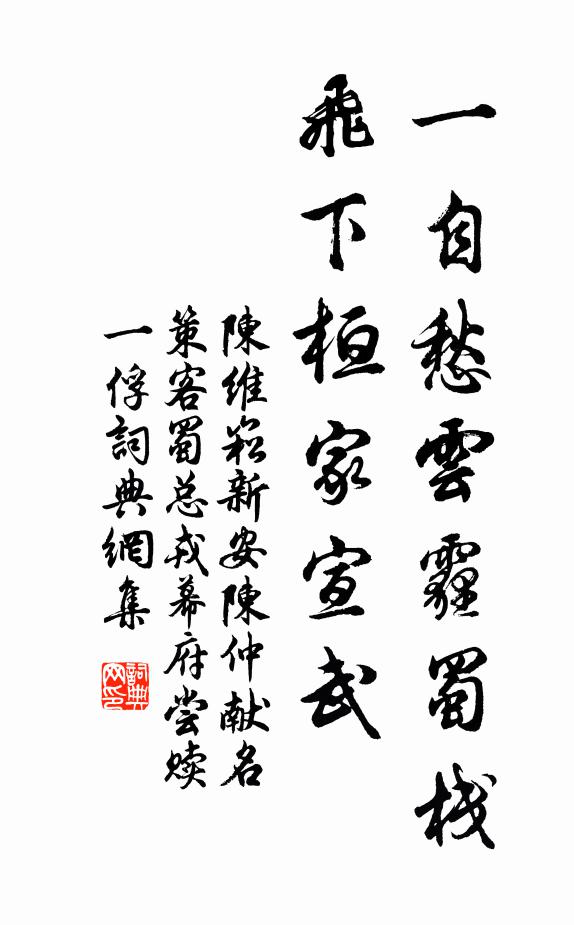 一自愁雲霾蜀棧
飛下桓家宣武
陳維崧新安陳仲献名
策客蜀总戎幕府尝赎
一俘詞典網集
詞典